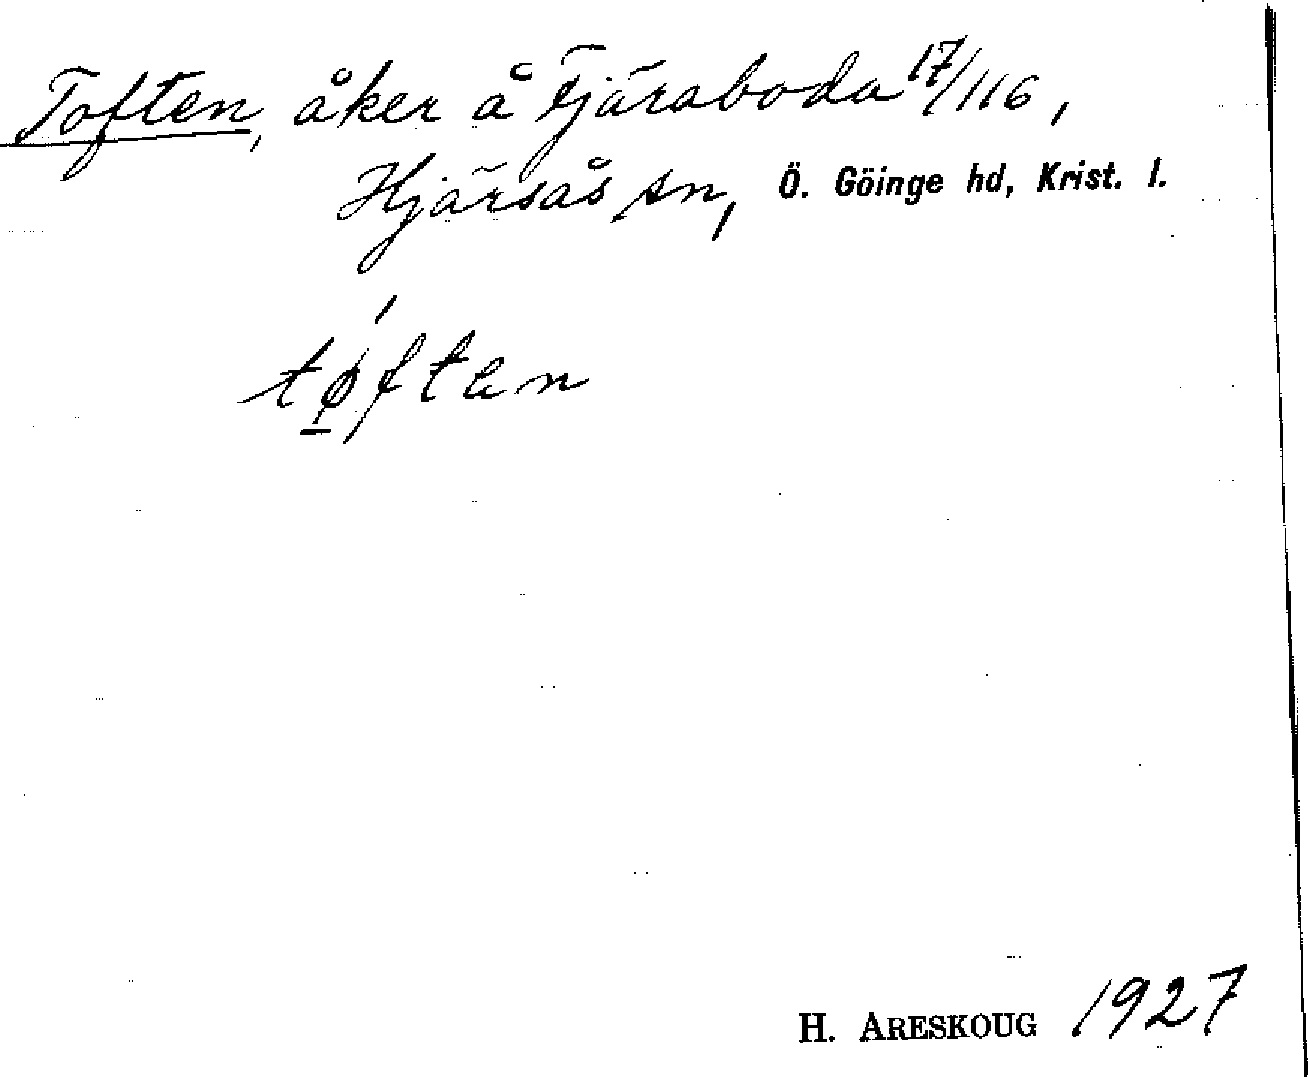 Toften, åker å Tjäraboda 17/116,
Hjärsås sn, Ö. Göinge hd, Krist. l.
tǿften
H. ARESKOUG 1927